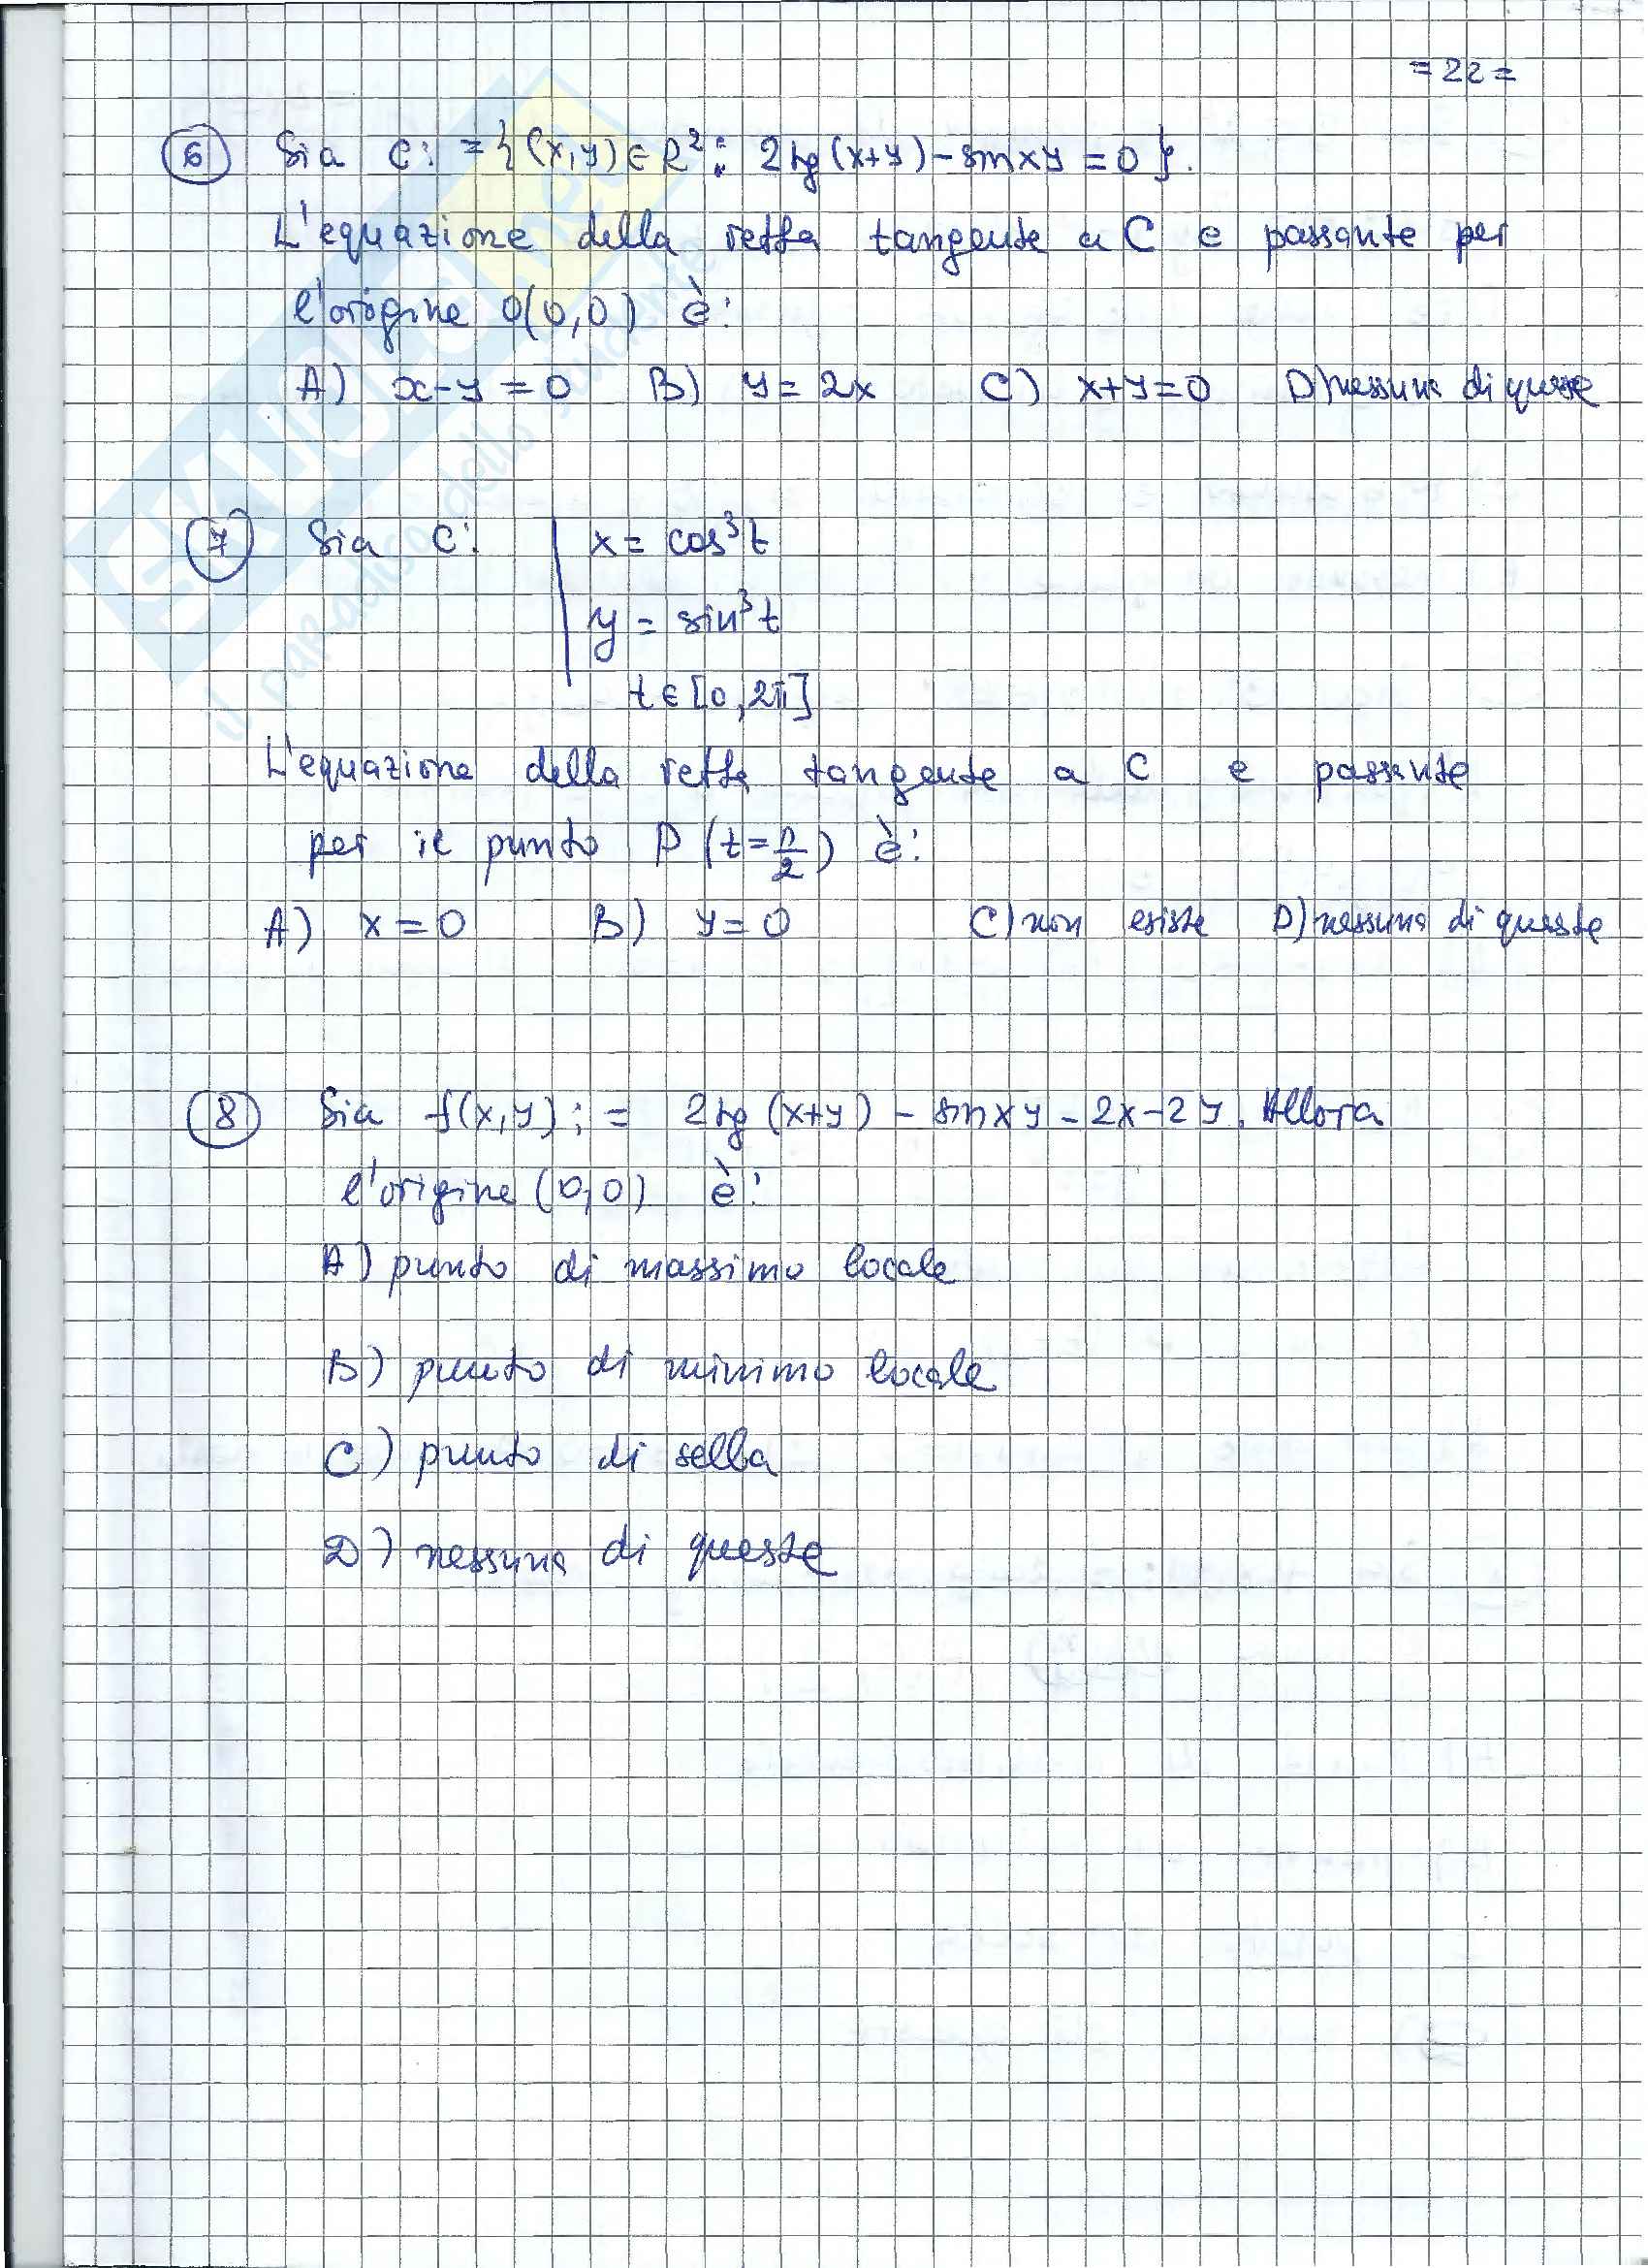 = 22 =
6 Sia C: = { (x,y) ∈ R² : 2tg (x+y) - sin xy = 0 }.
L'equazione della retta tangente a C e passante per
l'origine O(0,0) è:
A) x-y=0 B) y=2x C) x+y=0 D) nessuna di queste
7 Sia C: x = cos³t
y = sin³t
t ∈ [0, 2π]
L'equazione della retta tangente a C e passante
per il punto P (t=π/2) è:
A) x=0 B) y=0 C) non esiste D) nessuna di queste
8 Sia f(x,y) := 2tg (x+y) - sin xy - 2x-2y. Allora
l'origine (0,0) è:
A) punto di massimo locale
B) punto di minimo locale
C) punto di sella
D) nessuna di queste
SKUOLA.net
il paradiso dello studente